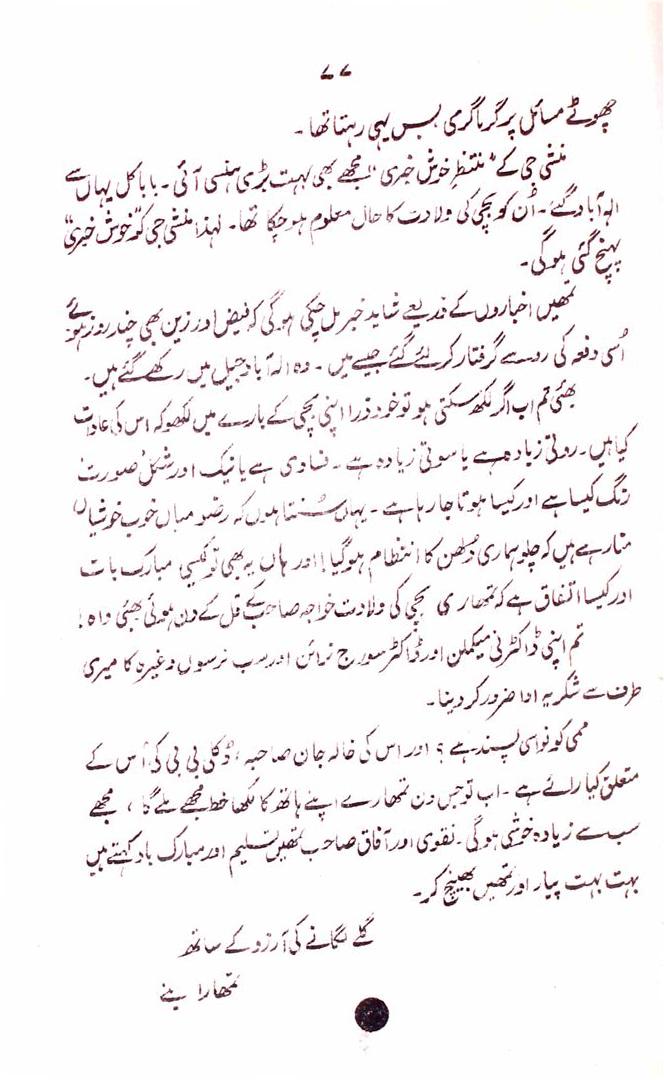 ۷۷
چھوٹے مسائل پر گرماگری بس یہی رہتا تھا۔
منشی جی کے "منتظرِ خوش خبری" مجھے بھی بہت بڑی ہنسی آئی۔ بابا کل یہاں سے
الہ آباد گئے۔ اُن کو بچی کی ولادت کا حال معلوم ہو چکا تھا۔ لہٰذا منشی جی کو "خوش خبری"
پہنچ گئی ہوگی۔
تمھیں اخباروں کے ذریعے شاید خبر مل چکی ہوگی کہ فیض اور زین بھی چند روز ہوئے
اُسی دفعہ کی رو سے گرفتار کرلئے گئے جیسے میں۔ وہ الہ آباد جیل میں رکھے گئے ہیں۔
بھئی تم اب اگر لکھ سکتی ہو تو خود ذرا اپنی بچی کے بارے میں لکھو کہ اس کی عادات
کیا ہیں۔ روتی زیادہ ہے یا سوتی زیادہ ہے۔ فسادی ہے یا نیک اور شکل صورت
رنگ کیسا ہے اور کیسا ہوتا جا رہا ہے۔ یہاں سنتا ہوں کہ رضو میاں خوب خوشیاں
منا رہے ہیں کہ چلو ہماری دولھن کا انتظام ہوگیا! اور ہاں یہ بھی تو کیسی مبارک بات
اور کیسا اتفاق ہے کہ تمھاری بچی کی ولادت خواجہ صاحب کے قل کے دن ہوئی بھئی واہ!
تم اپنی ڈاکٹرنی میکملن اور ڈاکٹر سورج نرائن اور سب نرسوں وغیرہ کا میری
طرف سے شکریہ ادا ضرور کر دینا۔
ممی کو نواسی پسند ہے؟ اور اس کی خالہ جان صاحبہ، ڈکلی بی بی کی اُس کے
متعلق کیا رائے ہے۔ اب تو جس دن تمھارے اپنے ہاتھ کا لکھا خط مجھے ملے گا، مجھے
سب سے زیادہ خوشی ہوگی۔ نقوی اور آفاق صاحب تمھیں تسلیم اور مبارک باد کہتے ہیں
بہت بہت پیار اور تمھیں بھینچ کر۔
گلے لگانے کی آرزو کے ساتھ
تمھارا بنے